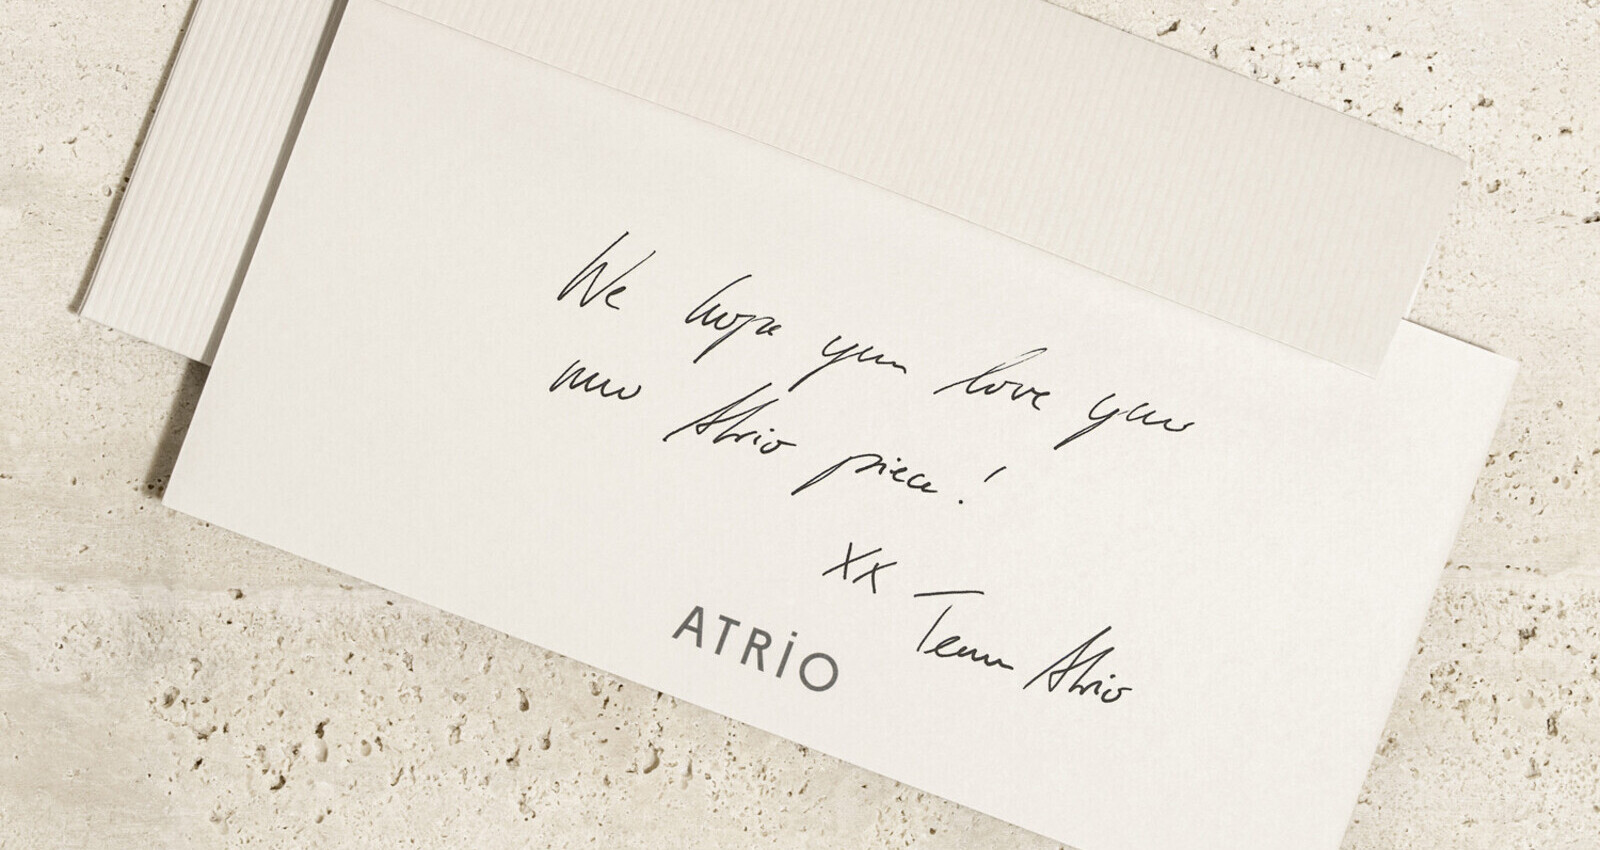 We hope you love your
new Atrio piece!
xx Team Atrio
ATRiO